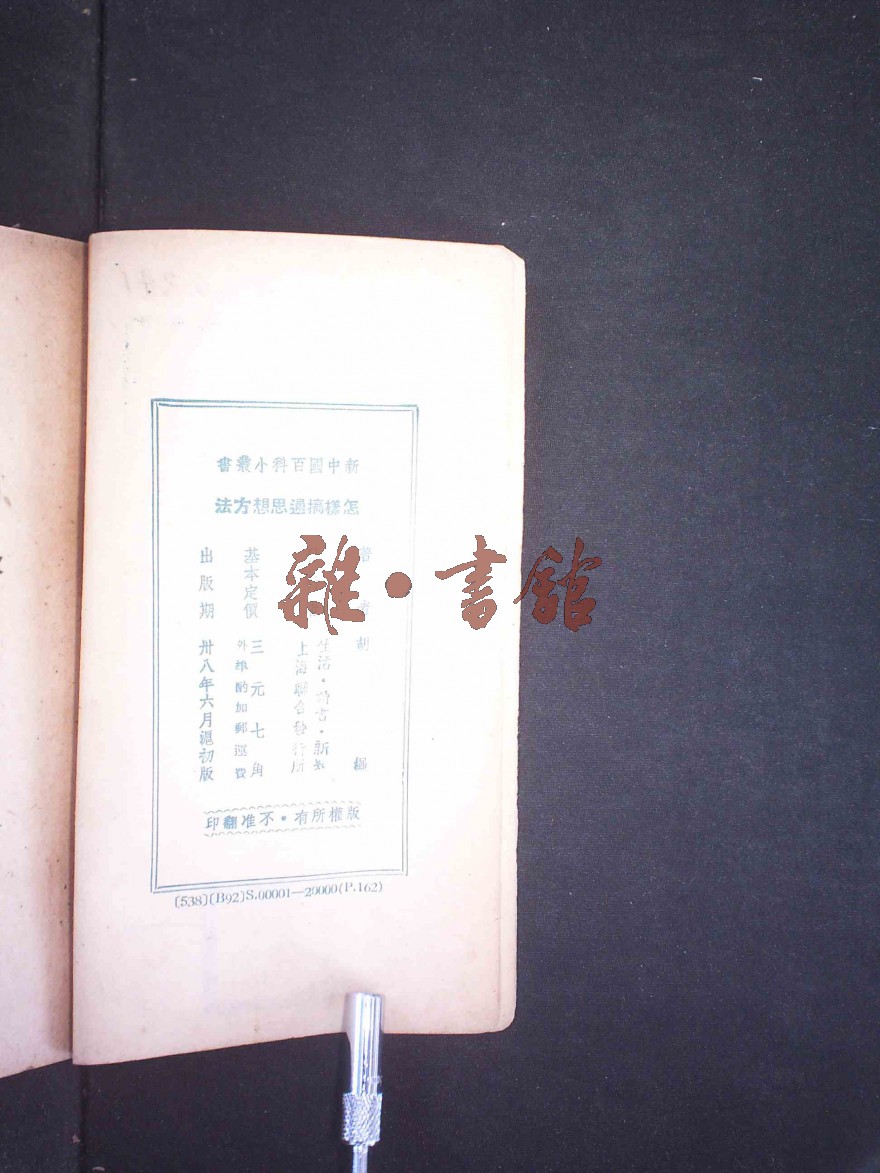 新中國百科小叢書
怎樣搞通思想方法
著者 胡繩
生活·讀書·新知
上海聯合發行所
基本定價 三元七角
外埠酌加郵運費
出版期 卅八年六月滬初版
版權所有·不准翻印
(538)(B92)S.00001—20000(P.162)
雜·書館